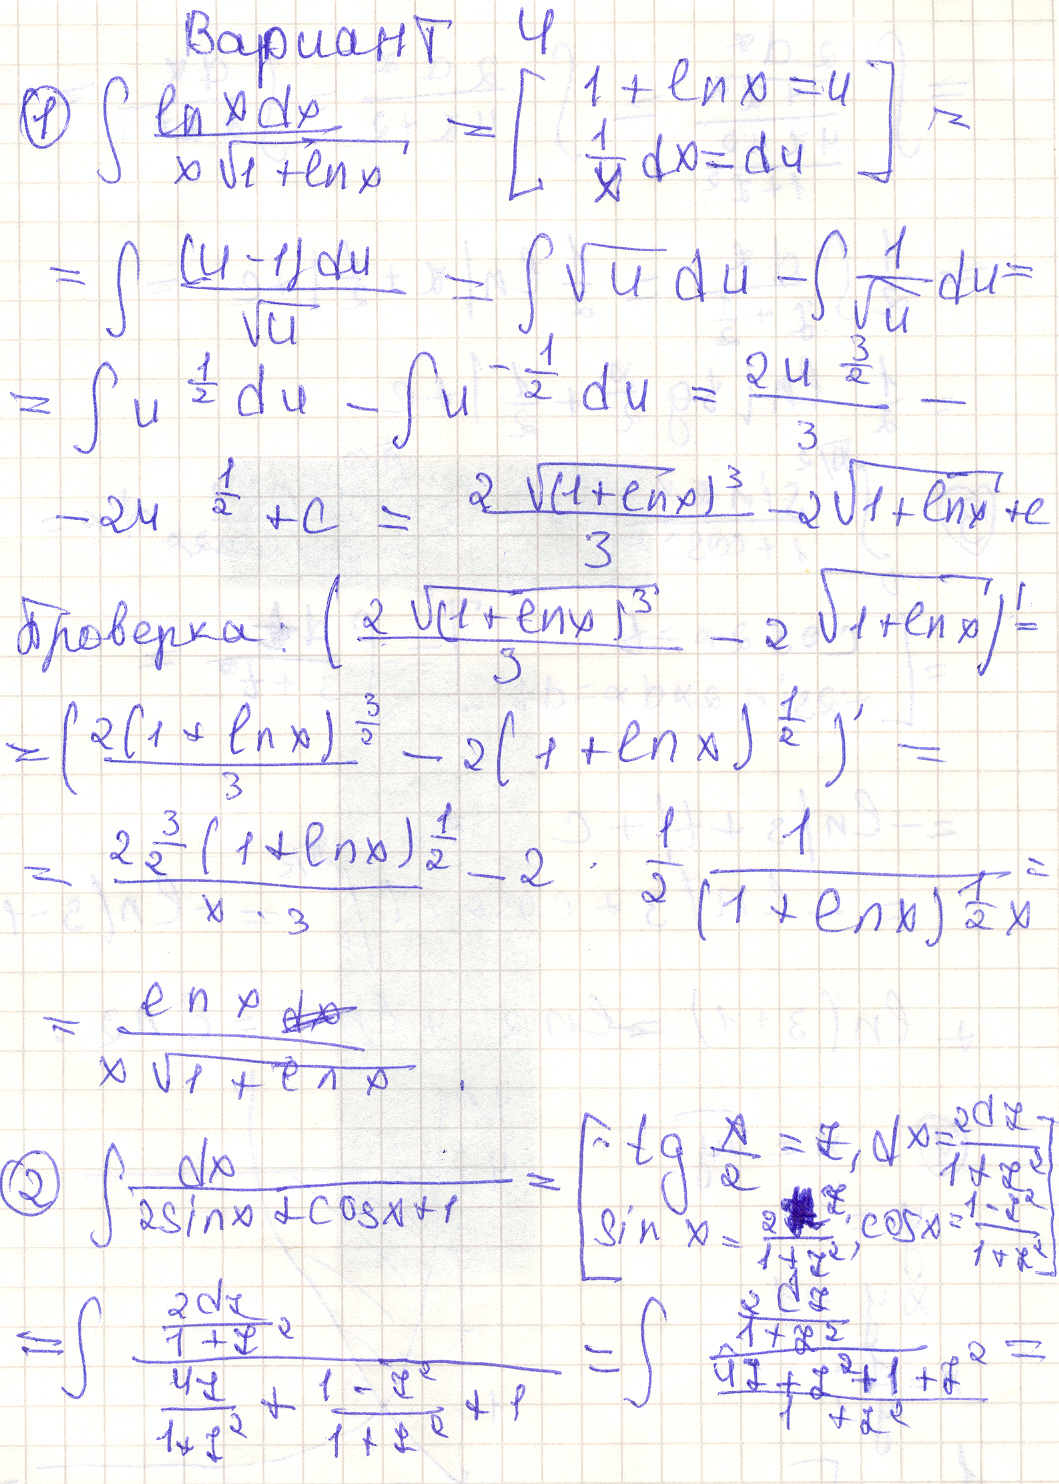 Вариант 4
① ∫ ln x dx / (x √(1+ln x)) = [ 1+ln x = u ; 1/x dx = du ] =
= ∫ (u-1) du / √u = ∫ √u du - ∫ 1/√u du =
= ∫ u^(1/2) du - ∫ u^(-1/2) du = 2u^(3/2) / 3 -
- 2u^(1/2) + C = 2 √(1+ln x)^3 / 3 - 2 √(1+ln x) + c
Проверка: ( 2 √(1+ln x)^3 / 3 - 2 √(1+ln x) )' =
= ( 2(1+ln x)^(3/2) / 3 - 2(1+ln x)^(1/2) )' =
= 2 3/2 (1+ln x)^(1/2) / (x · 3) - 2 · 1/2 1 / ((1+ln x)^(1/2) x) =
= ln x / (x √(1+ln x)) .
② ∫ dx / (2sin x + cos x + 1) = [ tg x/2 = z, dx = 2dz / (1+z^2) ; sin x = 2z / (1+z^2), cos x = (1-z^2) / (1+z^2) ]
= ∫ (2dz / (1+z^2)) / (4z / (1+z^2) + (1-z^2) / (1+z^2) + 1) = ∫ (2dz / (1+z^2)) / ((4z + z^2 + 1 + z^2) / (1+z^2)) =